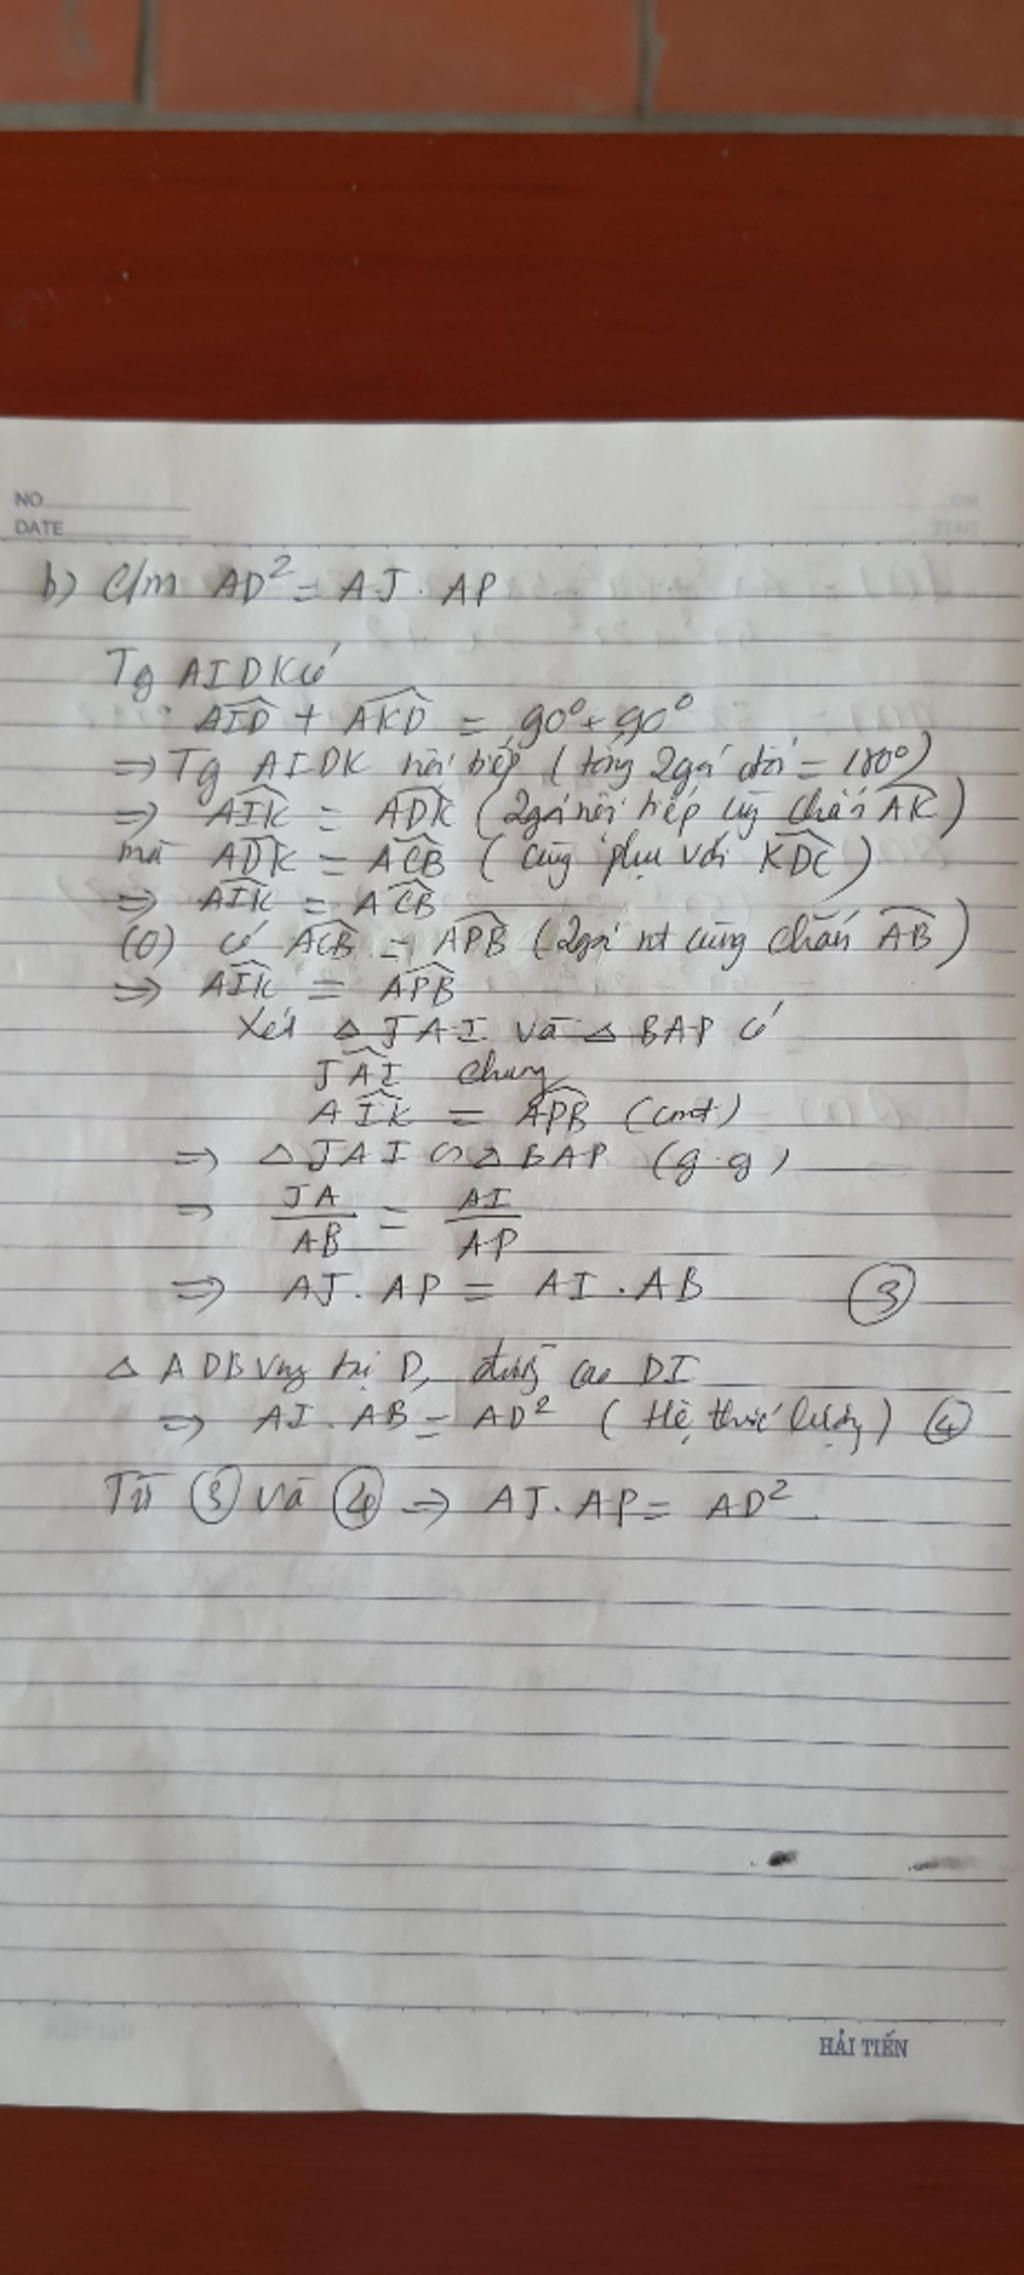 NO
DATE
b) C/m AD² = AJ . AP
Tg AIDK có
AID + AKD = 90° + 90°
=> Tg AIDK nội tiếp ( tổng 2 góc đối = 180°)
=> AIK = ADK (2 góc nội tiếp cùng chắn AK)
mà ADK = ACB ( cùng phụ với KDC)
=> AIK = ACB
(O) có ACB = APB (2 góc nt cùng chắn AB)
=> AIK = APB
Xét △ JAI và △ BAP có
JAI chung
AIK = APB (cmt)
=> △ JAI ∽ △ BAP (g.g)
=> JA/AB = AI/AP
=> AJ . AP = AI . AB ③
△ ADB vuông tại D, đường cao DI
=> AI . AB = AD² ( Hệ thức lượng) ④
Từ ③ và ④ => AJ . AP = AD².
HẢI TIẾN